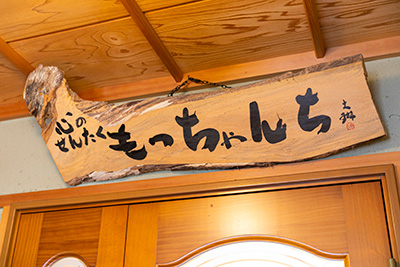 心の
せんたく
もっちゃんち